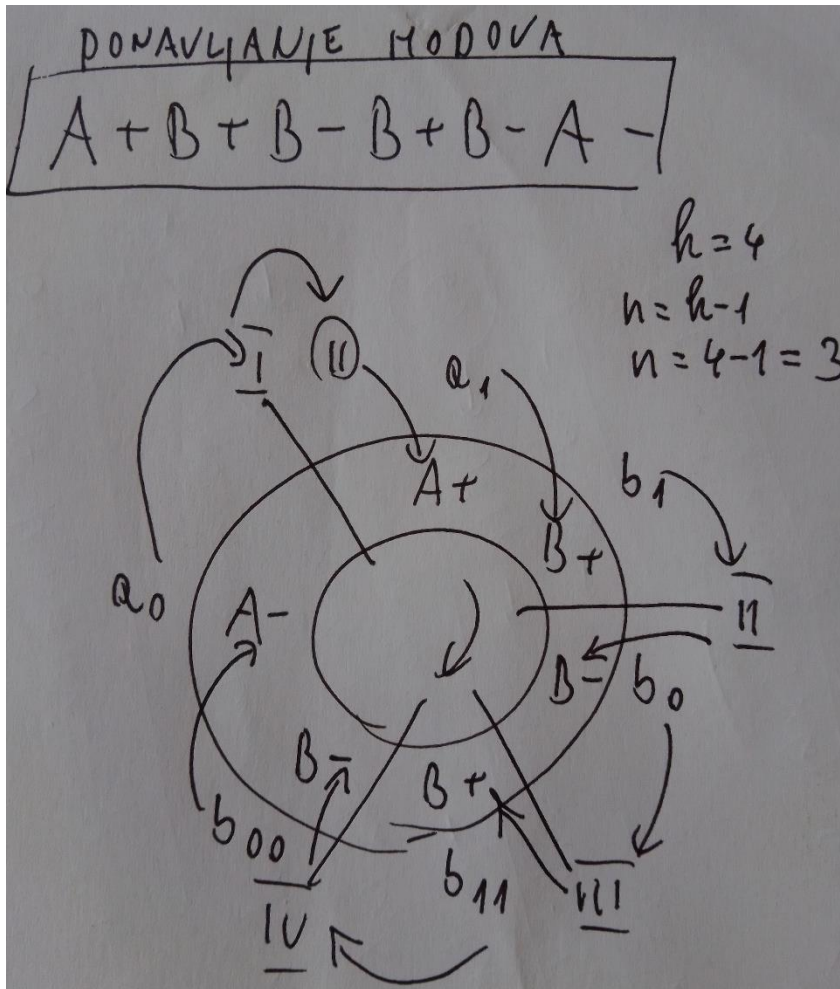 PONAVLJANJE HODOVA
A + B + B - B + B - A -
k = 4
n = k-1
n = 4-1 = 3
I
II
a1
A+
b1
B+
a0
A-
II
B-
b0
B-
B+
b00
b11
III
IV